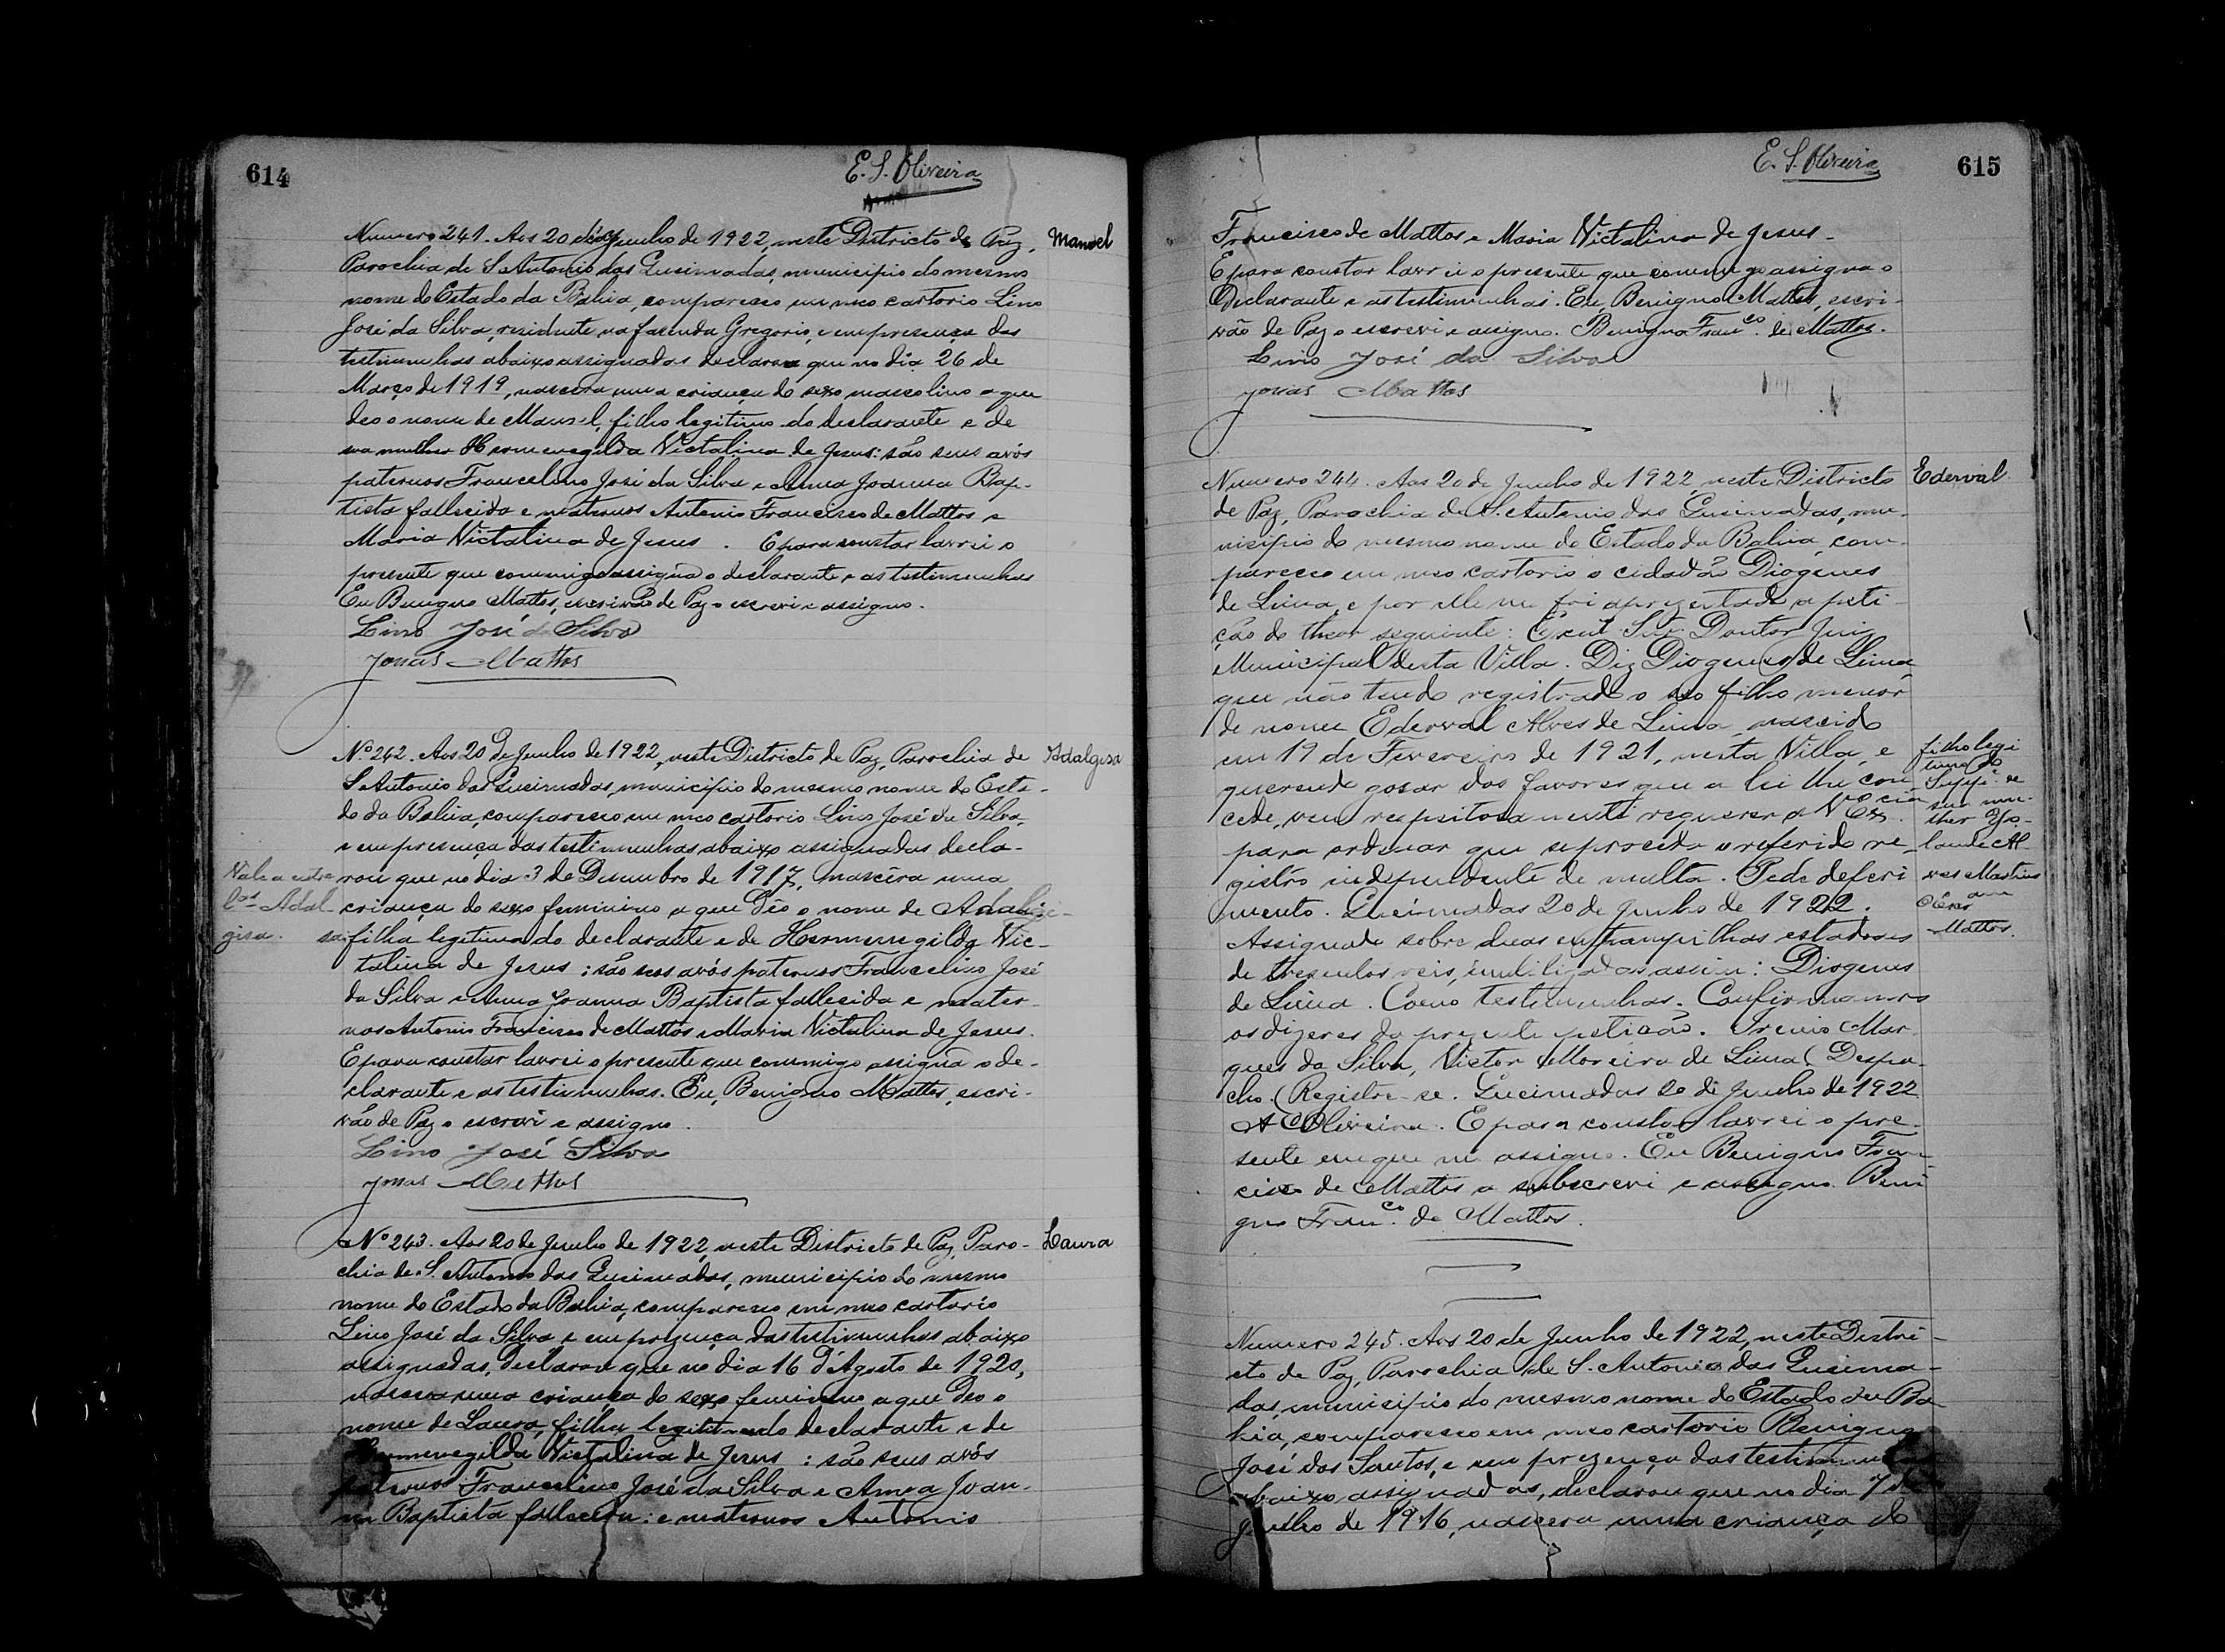 614
E. S. Oliveira
Numero 241. Aos 20 de Junho de 1922, neste Districto de Paz,
Manoel
Parochia de S. Antonio das Queimadas, municipio do mesmo
nome do Estado da Bahia, compareceo em meo cartorio Lino
José da Silva, residente na fazenda Gregorio, e em presença das
testimunhas abaixo assignadas declarou que no dia 26 de
Março de 1919, nascera uma criança do sexo mascolino a que
deo o nome de Manoel, filho legitimo do declarante e de
sua mulher Hermenegilda Victalina de Jesus: são seus avós
paternos Francelino José da Silva e Anna Joanna Bap-
tista fallecida e maternos Antonio Francisco de Mattos e
Maria Victalina de Jesus. E para constar lavrei o
presente que commigo assigna o declarante e as testimunhas
Eu Benigno Mattos, escrivão de Paz o escrevi e assigno.
Lino José da Silva
Jonas Mattos
Nº 242. Aos 20 de Junho de 1922, neste Districto de Paz, Parochia de
Adalgisa
S. Antonio das Queimadas, municipio do mesmo nome do Esta-
do da Bahia, compareceo em meo cartorio Lino José da Silva,
e em presença das testimunhas abaixo assignadas decla-
rou que no dia 3 de Dezembro de 1917, nascêra uma
Vale a entre
criança do sexo feminino a que deo o nome de
lª Adal-
gisa.
filha legitima do declarante e de Hermenegilda Vic-
talina de Jesus: são seos avós paternos Francelino José
da Silva e Anna Joanna Baptista fallecida e mater-
nos Antonio Francisco de Mattos e Maria Victalina de Jesus.
E para constar lavrei o presente que commigo assigna o de-
clarante e as testimunhas. Eu, Benigno Mattos, escri-
vão de Paz o escrevi e assigno.
Lino José Silva
Jonas Mattos
Nº 243. Aos 20 de Junho de 1922, neste Districto de Paz, Paro-
Laura
chia de S. Antonio das Queimadas, municipio do mesmo
nome do Estado da Bahia, compareceo em meo cartorio
Lino José da Silva, e em prezença das testimunhas abaixo
assignadas, declarou que no dia 16 d'Agosto de 1920,
nascera uma criança do sexo feminino a que deo o
nome de Laura, filha legitima do declarante e de
Hermenegilda Victalina de Jesus: são seus avós
paternos Francelino José da Silva e Anna Joan-
na Baptista fallecida: e maternos Antonio
E. S. Oliveira
615
Francisco de Mattos e Maria Victalina de Jesus.
E para constar lavrei o presente que commigo assigna o
Declarante e as testimunhas. Eu, Benigno Mattos, escri-
vão de Paz o escrevi e assigno. Benigno Franco. de Mattos.
Lino José da Silva
Jonas Mattos
Numero 244. Aos 20 de Junho de 1922, neste Districto
Ederval
de Paz, Parochia de S. Antonio das Queimadas, mu-
nicipio do mesmo nome do Estado da Bahia, com-
pareceo em meo cartorio o cidadão Diogenes
de Lima, e por elle me foi aprezentada a peti-
ção do theor seguinte: Exmº. Snr. Doutor Juiz
Municipal desta Villa. Diz Diogenes de Lima,
que não tendo registrado o seo filho menor
de nome Ederval Alves de Lima, nascido
em 19 de Fevereiro de 1921, nesta Villa, e
filho legi
timo do
querendo gosar dos favores que a lei lhe con-
Suppe. e
sua mu-
cede, vem respeitosamente requerer a V. Excia.
lher Yo-
para ordenar que se proceda o referido re-
lande Al-
gistro independente de multa. Pede deferi-
ves Martins
mento. Queimadas 20 de Junho de 1922.
Mattos.
Assignado sobre duas extampilhas estadoaes
de trezentos reis, inutilizadas assim: Diogenes
de Lima. Como testimunhas. Confirmamos
os dizeres da prezente petição. Irenio Mar-
ques da Silva, Victor Moreira de Lima. (Despa-
cho.) Registre-se. Queimadas 20 de Junho de 1922
A Oliveira. E para constar lavrei o pre-
sente em que me assigno. Eu Benigno Fran-
cisco de Mattos o subscrevi e assigno. Beni-
gno Franco. de Mattos.
Numero 245. Aos 20 de Junho de 1922, neste Distri-
cto de Paz, Parochia de S. Antonio das Queima-
das, municipio do mesmo nome do Estado da Ba-
hia, compareceo em meo cartorio Benigno
José dos Santos, e em prezença das testimunhas
abaixo assignadas, declarou que no dia 7 de
Junho de 1916, nascera uma criança do